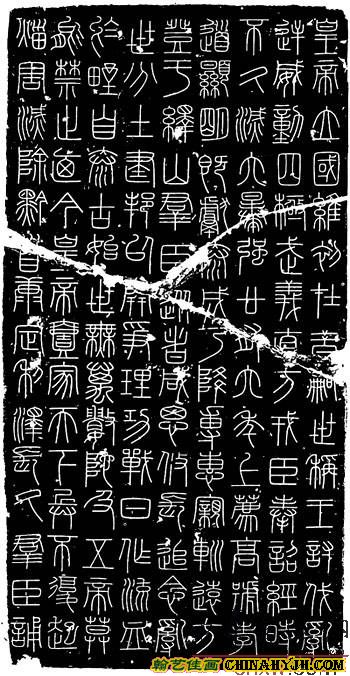 皇帝立國維初在昔嗣世稱王討伐亂
逆威動四極武義直方戎臣奉詔經時
不久滅六暴強廿有六年上薦高號孝
道顯明既獻泰成乃降專惠親巡遠方
登于繹山群臣從者咸思攸長追念亂
世分土建邦以開爭理功戰日作流血
於野自泰古始世無萬數陀及五帝莫
能禁止廼今皇帝壹家天下兵不復起
災害滅除黔首康定利澤長久群臣誦
翰艺佳画 CHINAHYJH.COM